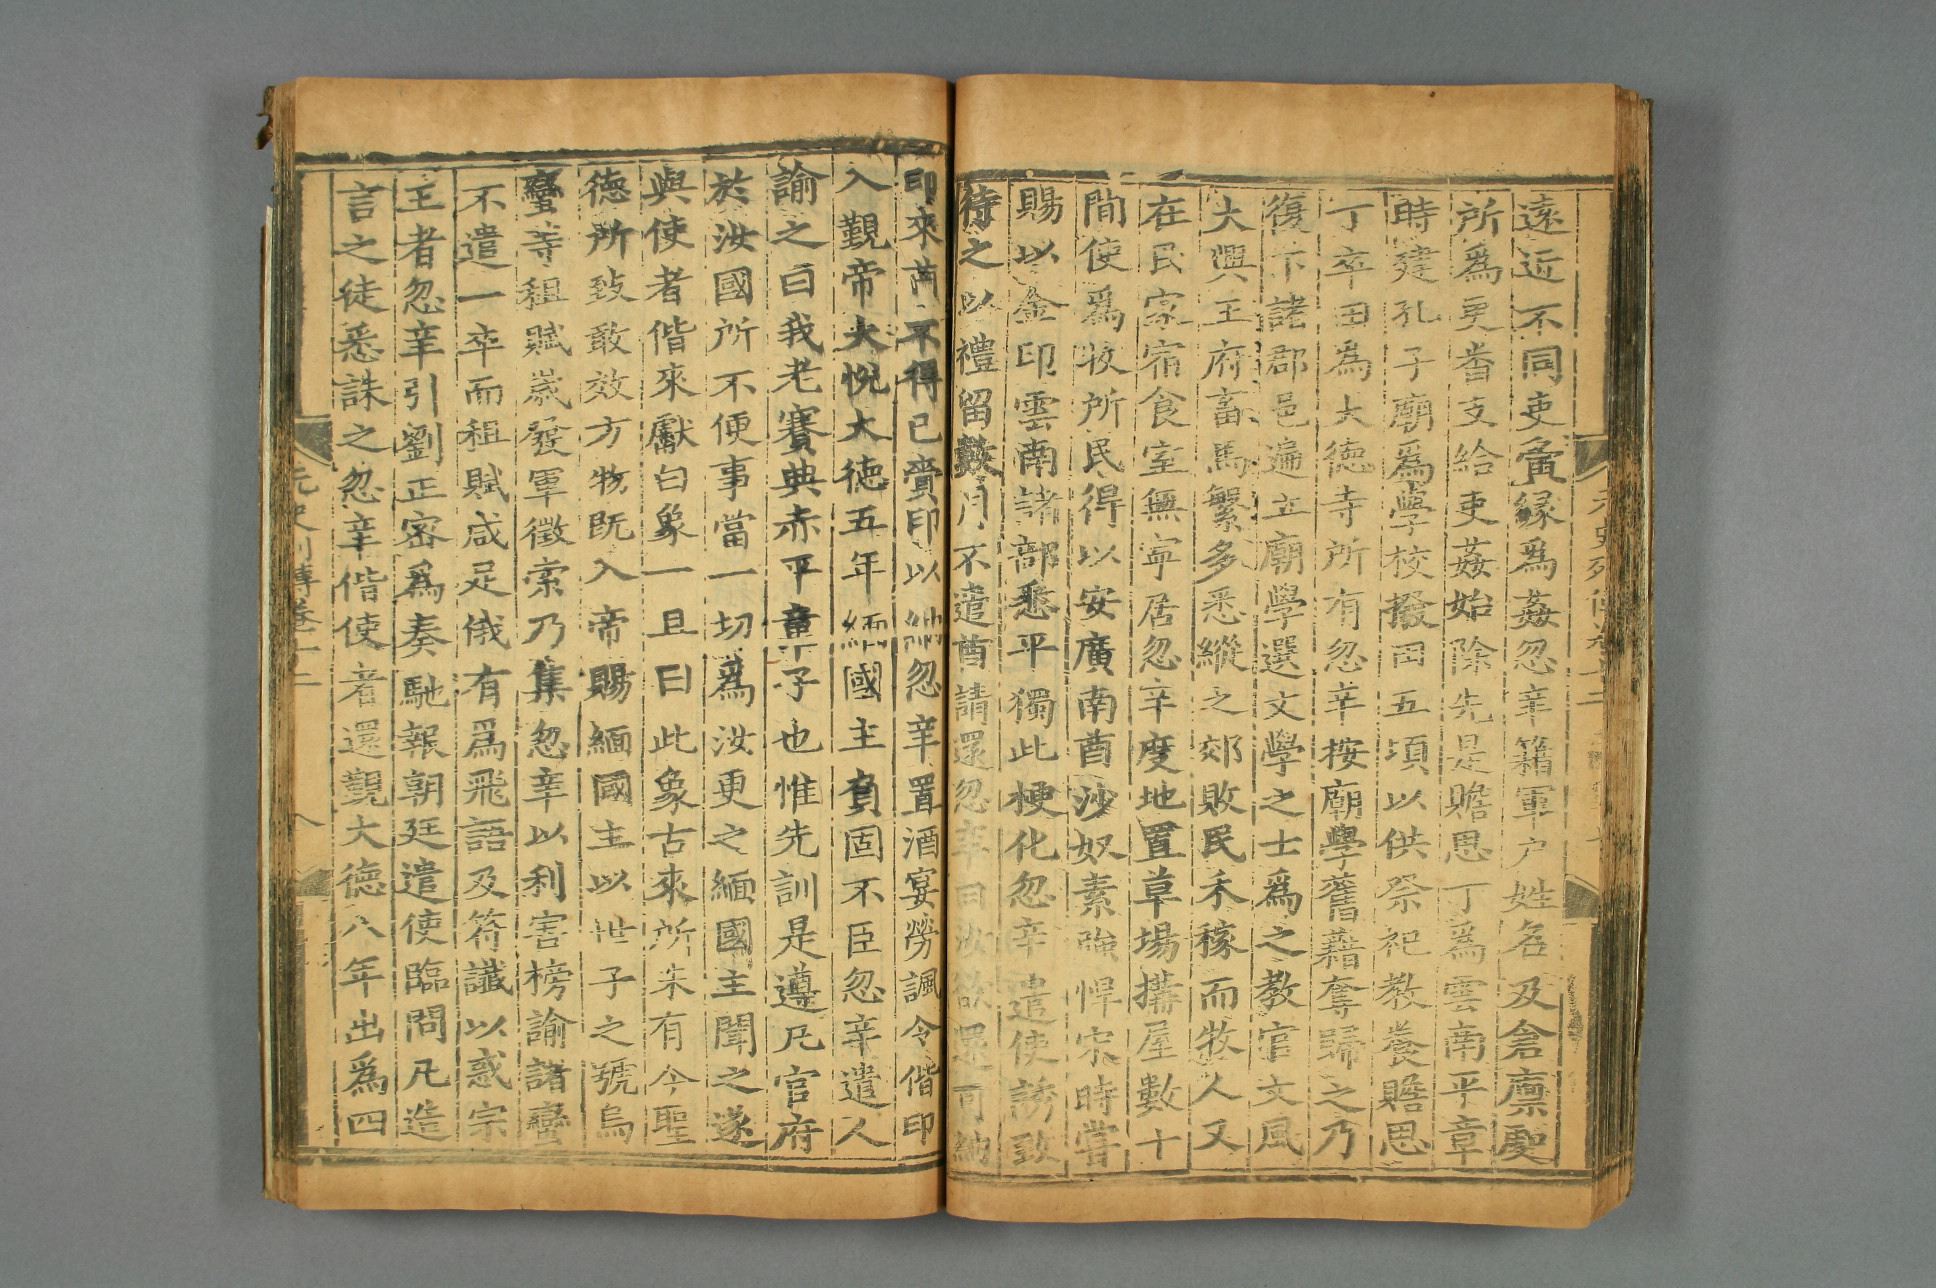 遠近不同吏夤緣爲姦忽辛籍軍戶姓名及倉廪處
所爲更畨支給吏姦始除先是贍思丁爲雲南平章
時建孔子廟爲學校撥田五頃以供祭祀教養贍思
丁卒田為大德寺所有忽辛按廟學舊藉奪歸之乃
復下諸郡邑遍立廟學選文學之士爲之教官文風
大興王府畜馬繁多悉縱之郊敗民禾稼而牧人又
在民家宿食室無寧居忽辛度地置草場搆屋數十
間使爲牧所民得以安廣南酋沙奴素強悍宋時嘗
賜以金印雲南諸部悉平獨此梗化忽辛遣使誘致
待之以禮留數月不遣酋請還忽辛曰汝欲還可納
印來酋不得已賫印以納忽辛置酒宴勞諷令偕印
入覲帝大悅大德五年緬國主負固不臣忽辛遣人
諭之曰我老賽典赤平章子也惟先訓是遵凡官府
於汝國所不便事當一切爲汝更之緬國主聞之遂
與使者偕來獻白象一且曰此象古來所未有今聖
德所致敢效方物既入帝賜緬國主以世子之號烏
蠻等租賦歲發軍徵索乃集忽辛以利害榜諭諸蠻
不遣一卒而租賦咸足俄有爲飛語及符讖以惑宗
王者忽辛引劉正密爲奏馳報朝廷遣使臨問凡造
言之徒悉誅之忽辛偕使者還覲大德八年出爲四
元史列傳卷十二
八